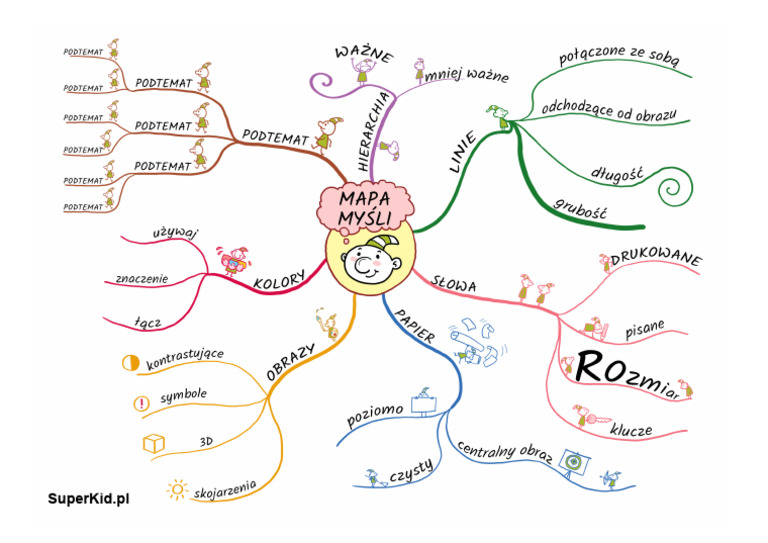 MAPA
MYŚLI
WAŻNE
mniej ważne
HIERARCHIA
LINIE
połączone ze sobą
odchodzące od obrazu
długość
grubość
SŁOWA
DRUKOWANE
pisane
ROzmiar
klucze
PAPIER
poziomo
czysty
centralny obraz
OBRAZY
kontrastujące
symbole
!
3D
skojarzenia
KOLORY
używaj
znaczenie
łącz
PODTEMAT
PODTEMAT
PODTEMAT
PODTEMAT
PODTEMAT
PODTEMAT
PODTEMAT
PODTEMAT
PODTEMAT
PODTEMAT
SuperKid.pl